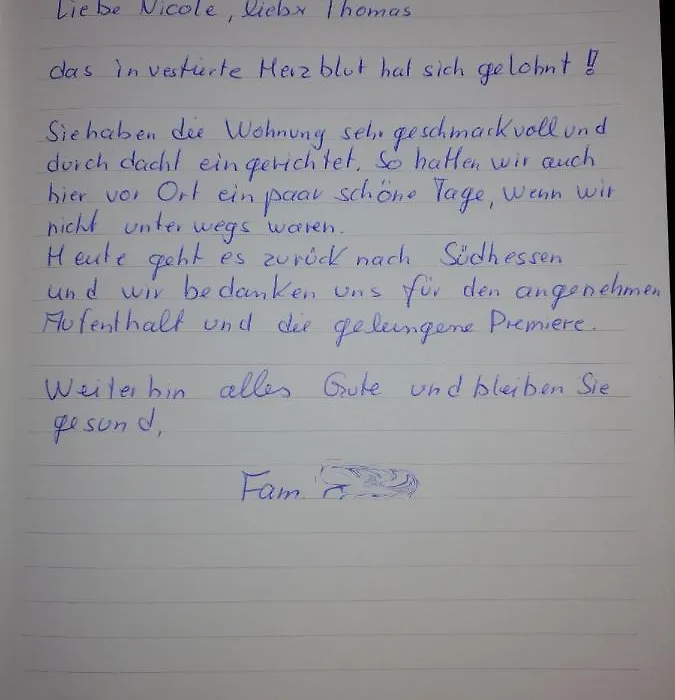 Liebe Nicole, lieber Thomas
das investierte Herzblut hat sich gelohnt!!
Sie haben die Wohnung sehr geschmackvoll und
durchdacht eingerichtet. So hatten wir auch
hier vor Ort ein paar schöne Tage, wenn wir
nicht unterwegs waren.
Heute geht es zurück nach Südhessen
und wir bedanken uns für den angenehmen
Aufenthalt und die gelungene Premiere.
Weiterhin alles Gute und bleiben Sie
gesund,
Fam.